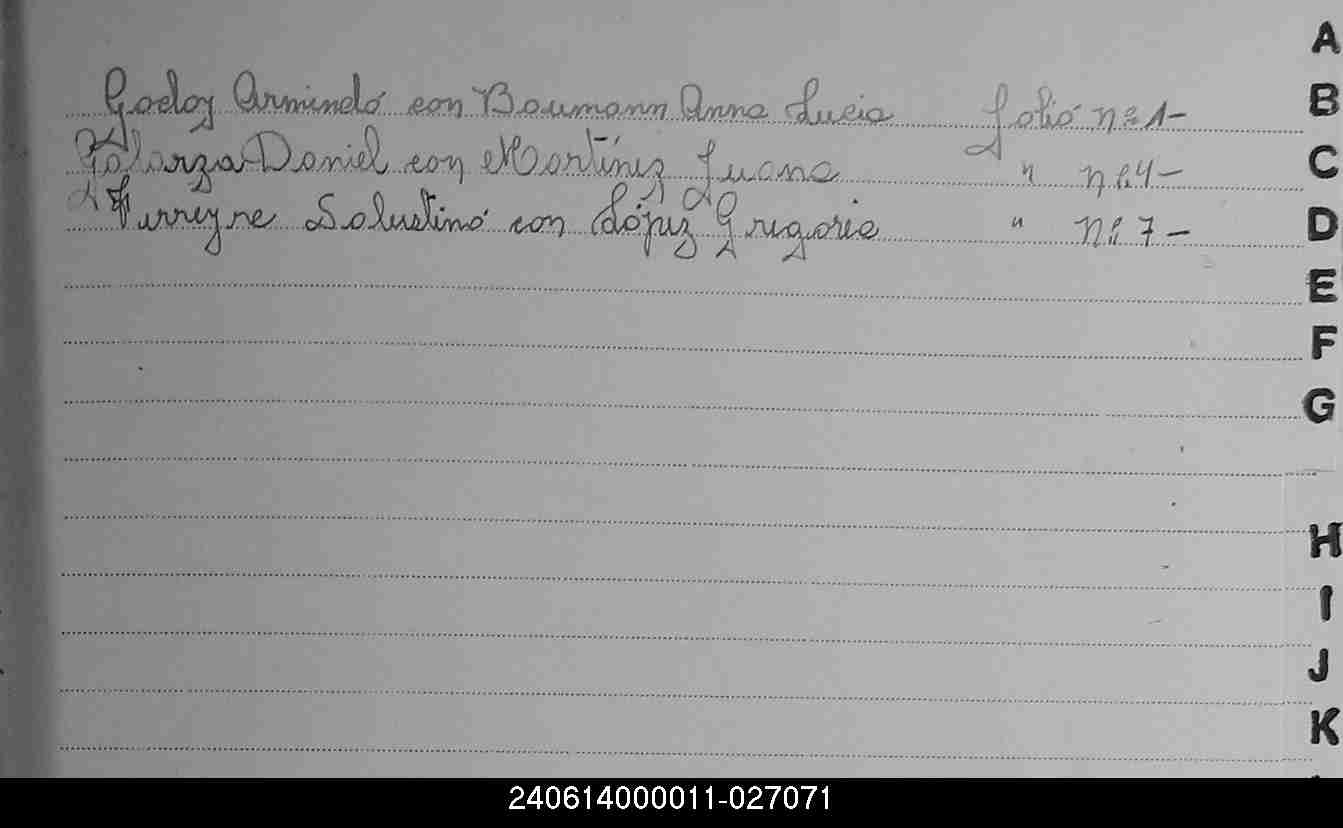 Godoy Armindo con Baumann Anna Lucia folio nº 1-
Galarza Daniel con Martínez Juana " nº 4-
Ferreyre Salustino con López Gregoria " nº 7-
A
B
C
D
E
F
G
H
I
J
K
240614000011-027071